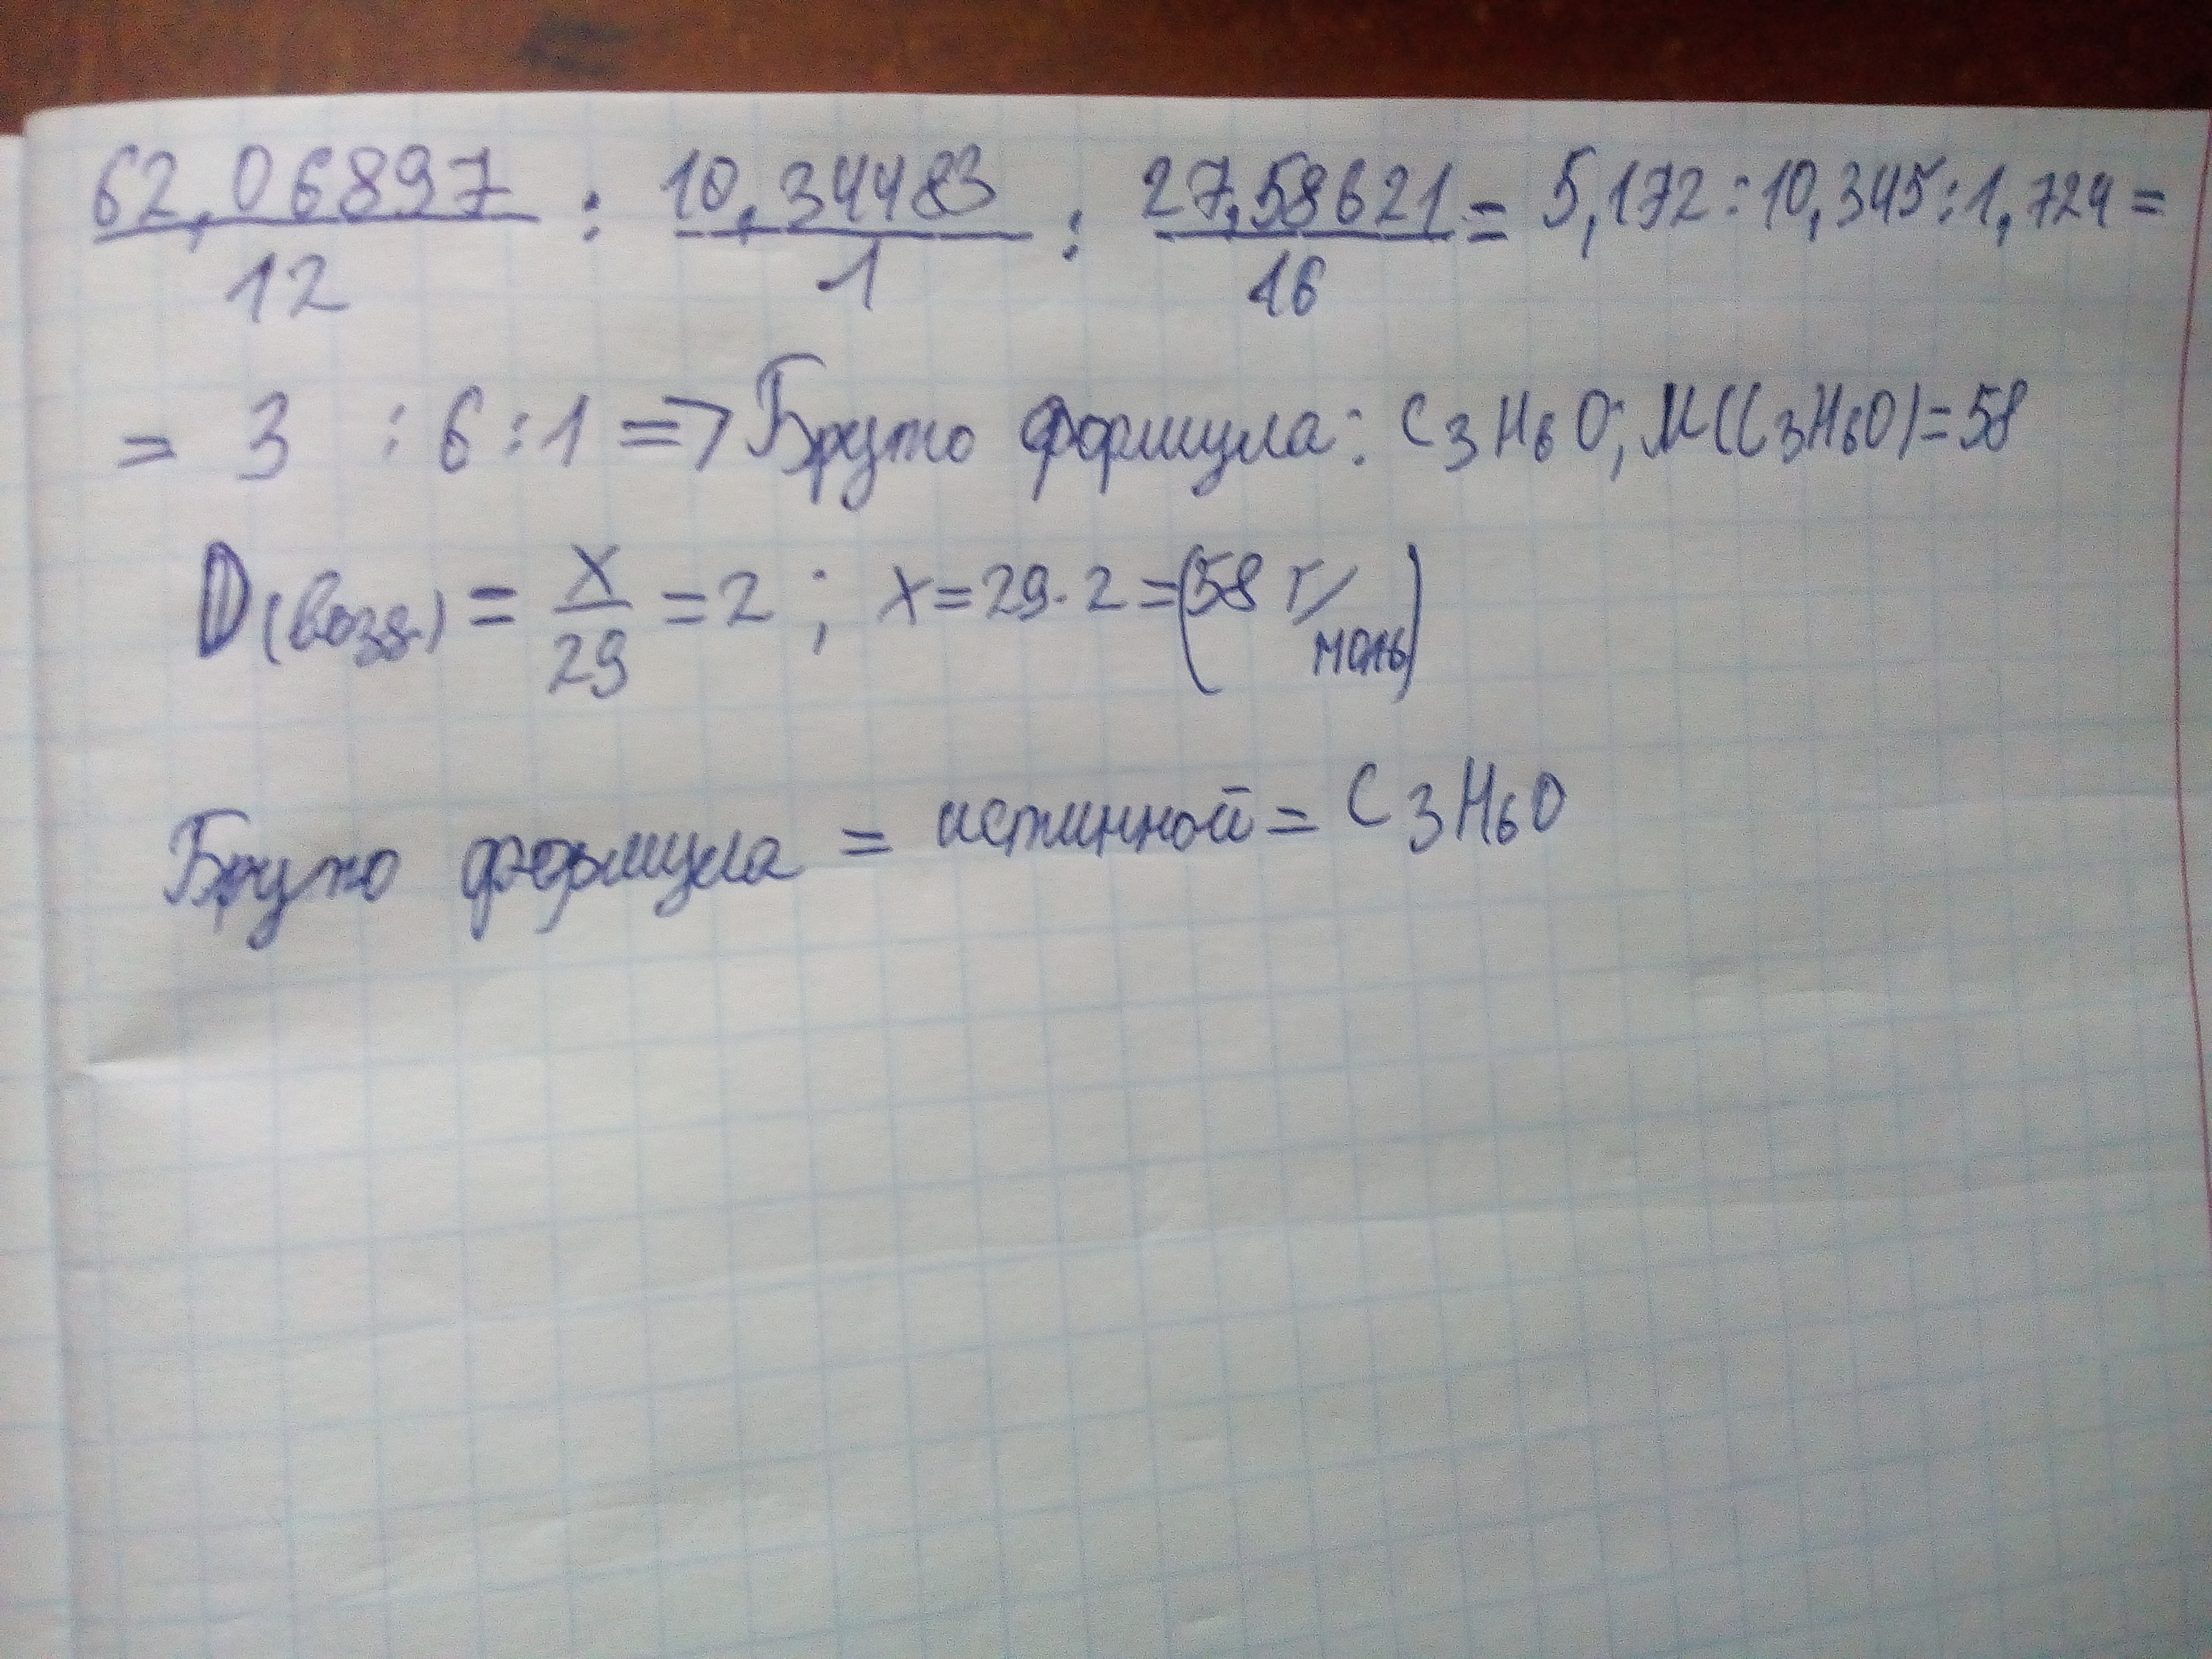 62,06897/12 : 10,34483/1 : 27,58621/16 = 5,172 : 10,345 : 1,724 =
= 3 : 6 : 1 => Бруто формула: C3H6O; M(C3H6O)=58
D(возд.) = x/29 = 2; x = 29·2 = (58 г/моль)
Бруто формула = истинной = C3H6O